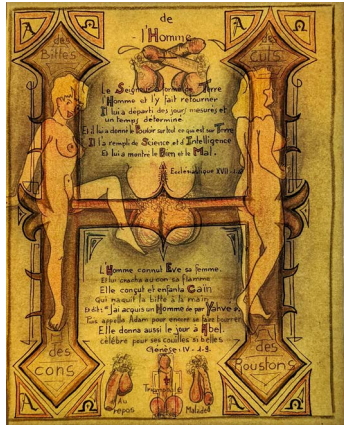 de
l'Homme
des
Bittes
des
Culs
Le Seigneur a formé de Terre
l'Homme et l'y fait retourner
Il lui a départi des jours mesurés et
un temps déterminé
Et il lui a donné le Pouvoir sur tout ce qui est sur Terre
Il l'a rempli de Science et d'Intelligence
Et lui a montré le Bien et le Mal.
Ecclésiastique XVII
L'Homme connut Eve sa femme.
Et lui cracha au con sa flamme
Elle conçut et enfanta Caïn
Qui naquit la bitte à la main
Et dit "J'ai acquis un Homme de par Yahvé"
Puis appella Adam pour encore se faire bourrer
Elle donna aussi le jour à Abel.
célèbre pour ses couilles si belles
Genèse : IV - 1-2.
des
cons
des
Roustons
A
Ω
A
Ω
A
Ω
A
Ω
Au
repos
Malade